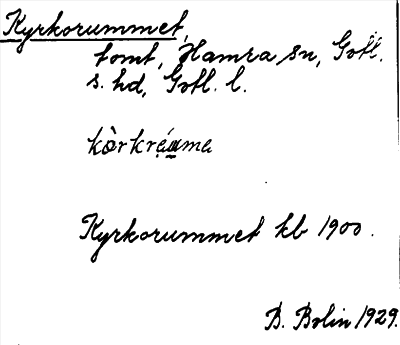 Kyrkorummet,
tomt, Hamra sn, Gotl.
s. hd, Gotl. l.
kòrkrá̤u̲me
Kyrkorummet kb 1900.
B. Bolin 1929.